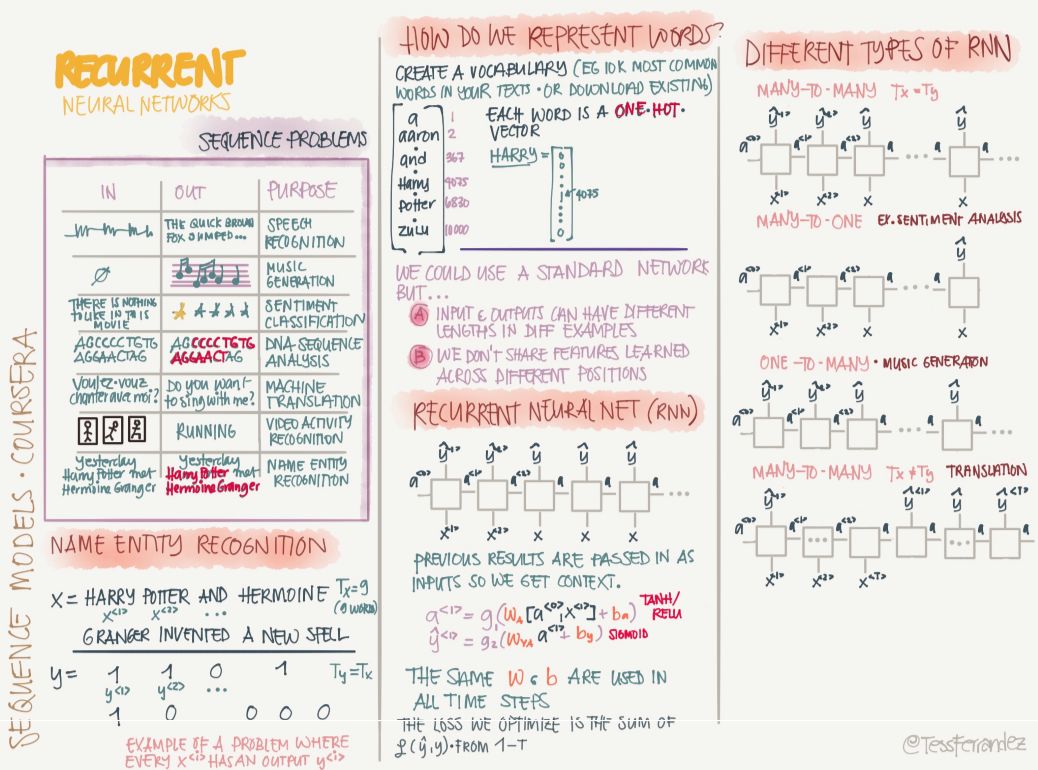 RECURRENT
NEURAL NETWORKS
SEQUENCE PROBLEMS
IN OUT PURPOSE
THE QUICK BROWN
FOX JUMPED...
SPEECH
RECOGNITION
∅
MUSIC
GENERATION
THERE IS NOTHING
TO LIKE IN THIS
MOVIE
SENTIMENT
CLASSIFICATION
AGCCCCTGTG
AGGAACTAG
AGCCCCTGTG
AGGAACTAG
DNA-SEQUENCE
ANALYSIS
Voulez-vouz
chanter avec moi?
Do you want
to sing with me?
MACHINE
TRANSLATION
RUNNING
VIDEO ACTIVITY
RECOGNITION
Yesterday
Harry Potter met
Hermoine Granger
Yesterday
Harry Potter met
Hermoine Granger
NAME ENTITY
RECOGNITION
SEQUENCE MODELS · COURSERA
NAME ENTITY RECOGNITION
X = HARRY POTTER AND HERMOINE Tx=9
x<1> x<2> ... (9 WORDS)
GRANGER INVENTED A NEW SPELL
y = 1 1 0 1 Ty=Tx
y<1> y<2> ...
1 0 0 0 0
EXAMPLE OF A PROBLEM WHERE
EVERY X<i> HAS AN OUTPUT y<i>
HOW DO WE REPRESENT WORDS?
CREATE A VOCABULARY (EG 10K MOST COMMON
WORDS IN YOUR TEXTS · OR DOWNLOAD EXISTING)
a 1
aaron 2
and 367
Harry 4075
Potter 6830
zulu 10000
EACH WORD IS A ONE·HOT·
VECTOR
HARRY =
0
0
1
4075
0
WE COULD USE A STANDARD NETWORK
BUT...
A INPUT & OUTPUTS CAN HAVE DIFFERENT
LENGTHS IN DIFF EXAMPLES
B WE DON'T SHARE FEATURES LEARNED
ACROSS DIFFERENT POSITIONS
RECURRENT NEURAL NET (RNN)
ŷ<1> ŷ<2> ŷ ŷ ŷ
...
x<1> x<2> x x x
PREVIOUS RESULTS ARE PASSED IN AS
INPUTS SO WE GET CONTEXT.
a<1> = g1(WA[a<0>,x<1>] + ba) TANH/
RELU
ŷ<1> = g2(WYA a<1> + by) SIGMOID
THE SAME W & b ARE USED IN
ALL TIME STEPS
THE LOSS WE OPTIMIZE IS THE SUM OF
ℒ(ŷ,y) · FROM 1-T
DIFFERENT TYPES OF RNN
MANY-TO-MANY Tx = Ty
ŷ<1> ŷ<2> ŷ ŷ
a<0> a<1> a<2> a ... a ...
x<1> x<2> x x
MANY-TO-ONE EX. SENTIMENT ANALYSIS
ŷ
a<0> a<1> a<2> a ... a
x<1> x<2> x x
ONE-TO-MANY · MUSIC GENERATION
ŷ<1> ŷ<2> ŷ ŷ
a<0> a<1> a<2> a ... a ...
MANY-TO-MANY Tx ≠ Ty TRANSLATION
ŷ<1> ŷ ŷ<T>
a<0> a<1> a<2> a a a
... ...
x<1> x<2> x<T>
@TessFerrandez